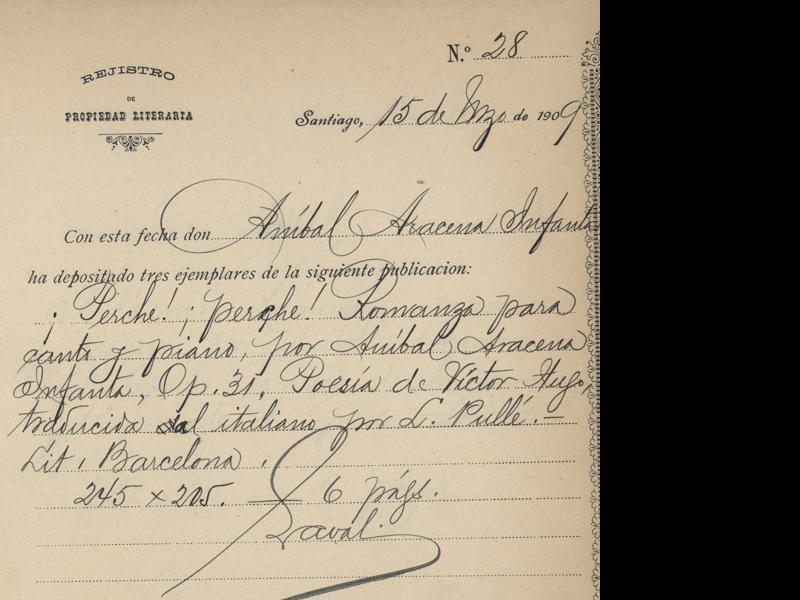 N.º 28
REJISTRO
DE
PROPIEDAD LITERARIA
Santiago, 15 de Mzo de 1909
Con esta fecha don Aníbal Aracena Infanta
ha depositado tres ejemplares de la siguiente publicacion:
¡Perché! ¡perche! Romanza para
canto y piano, por Aníbal Aracena
Infanta, Op. 31, Poesía de Víctor Hugo,
traducida al italiano por L. Pullé. —
Lit. Barcelona.
245 × 205. — 6 págs.
Laval